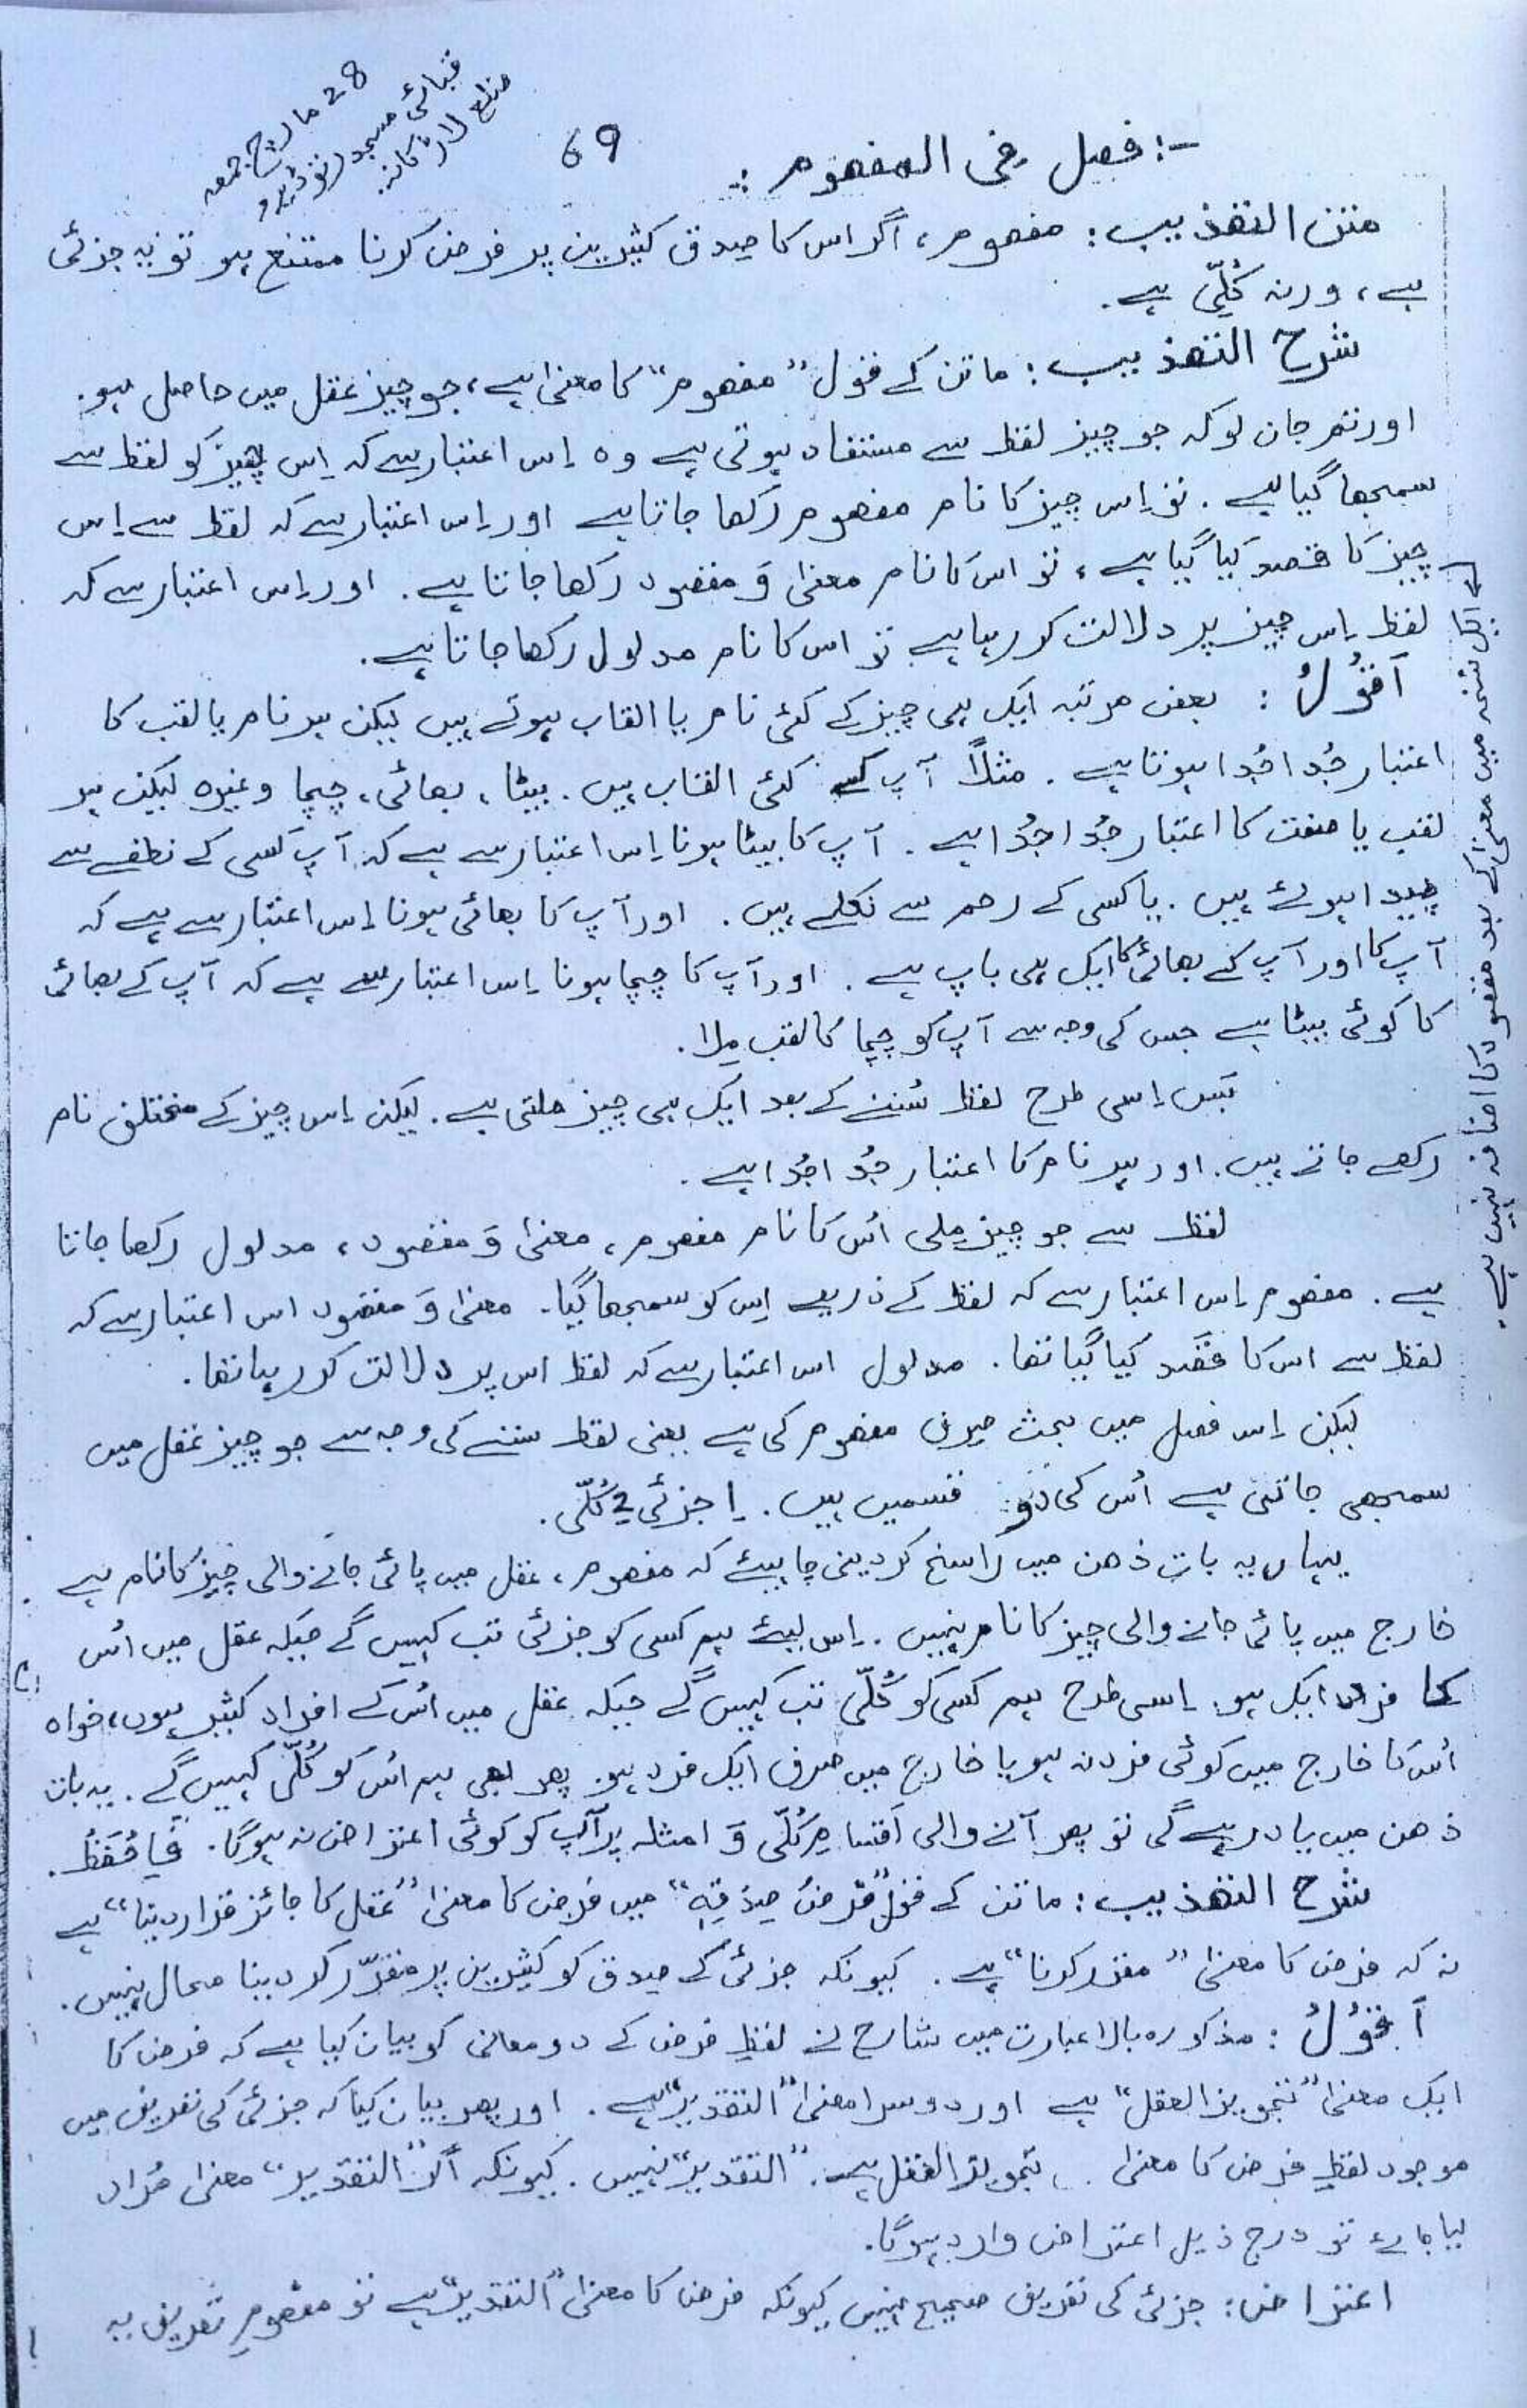 28 مارچ جمعہ
قبائی مسجد رتوڈیرو
ضلع لاڑکانہ
69
-: فصل فی المفہوم :-
متن التھذیب : مفھوم، اگر اس کا صدق کثیرین پر فرض کرنا ممتنع ہو تو یہ جزئی
ہے، ورنہ کُلّی ہے.
شرح التھذیب : ماتن کے قول "مفھوم" کا معنیٰ ہے، جو چیز عقل میں حاصل ہو.
اور تم جان لو کہ جو چیز لفظ سے مستفاد ہوتی ہے وہ اِس اعتبار سے کہ اِس چیز کو لفظ سے
سمجھا گیا ہے. تو اِس چیز کا نام مفھوم رکھا جاتا ہے اور اِس اعتبار سے کہ لفظ سے اِس
چیز کا قصد کیا گیا ہے، تو اس کا نام معنیٰ وَ مقصود رکھا جاتا ہے. اور اِس اعتبار سے کہ
لفظ اِس چیز پر دلالت کر رہا ہے تو اس کا نام مدلول رکھا جاتا ہے.
اَقُوْلُ : بعض مرتبہ ایک ہی چیز کے کئی نام یا القاب ہوتے ہیں لیکن ہر نام یا لقب کا
اعتبار جُدا جُدا ہوتا ہے. مثلاً آپ کے کئی القاب ہیں. بیٹا، بھائی، چچا وغیرہ لیکن ہر
لقب یا صفت کا اعتبار جُدا جُدا ہے. آپ کا بیٹا ہونا اِس اعتبار سے ہے کہ آپ کسی کے نطفے سے
پیدا ہوئے ہیں. یا کسی کے رحم سے نکلے ہیں. اور آپ کا بھائی ہونا اِس اعتبار سے ہے کہ
آپ کا اور آپ کے بھائی کا ایک ہی باپ ہے. اور آپ کا چچا ہونا اِس اعتبار سے ہے کہ آپ کے بھائی
کا کوئی بیٹا ہے جس کی وجہ سے آپ کو چچا کا لقب مِلا.
پَس اِسی طرح لفظ سُننے کے بعد ایک ہی چیز ملتی ہے. لیکن اِس چیز کے مختلف نام
رکھے جاتے ہیں. اور ہر نام کا اعتبار جُدا جُدا ہے.
لفظ سے جو چیز مِلی اُس کا نام مفھوم، معنیٰ وَ مقصود، مدلول رکھا جاتا
ہے. مفھوم اِس اعتبار سے کہ لفظ کے ذریعے اِس کو سمجھا گیا. معنیٰ وَ مقصود اس اعتبار سے کہ
لفظ سے اس کا قصَد کیا گیا تھا. مدلول اس اعتبار سے کہ لفظ اس پر دلالت کر رہا تھا.
لیکن اِس فصل میں بحث صرف مفھوم کی ہے یعنی لفظ سننے کی وجہ سے جو چیز عقل میں
سمجھی جاتی ہے اُس کی دو قسمیں ہیں. 1 جزئی 2 کُلّی.
یہاں یہ بات ذھن میں راسخ کر دینی چاہیئے کہ مفھوم، عقل میں پائی جانے والی چیز کا نام ہے
خارج میں پائی جانے والی چیز کا نام نہیں. اِس لیئے ہم کسی کو جزئی تب کہیں گے جبکہ عقل میں اُس
کا فرد ایک ہو. اِسی طرح ہم کسی کو کُلّی تب کہیں گے جبکہ عقل میں اُس کے افراد کثیر ہوں، خواہ
اُس کا خارج میں کوئی فرد نہ ہو یا خارج میں صرف ایک فرد ہو. پھر بھی ہم اُس کو کُلّی کہیں گے. یہ بات
ذھن میں یاد رہے گی تو پھر آنے والی اَقسامِ کُلّی وَ امثلہ پر آپ کو کوئی اعتراض نہ ہوگا. فَاحْفَظْ.
شرح التھذیب : ماتن کے قول "فَرْضُ صِدْقِہٖ" میں فرض کا معنیٰ "عقل کا جائز قرار دینا" ہے
نہ کہ فرض کا معنیٰ "مقرر کرنا" ہے. کیونکہ جزئی کے صدق کو کثیرین پر مقرّر کر دینا محال نہیں.
اَقُوْلُ : مذکورہ بالا عبارت میں شارح نے لفظِ فرض کے دو معانی کو بیان کیا ہے کہ فرض کا
ایک معنیٰ "تجویز العقل" ہے اور دوسرا معنیٰ "التقدیر" ہے. اور پھر بیان کیا کہ جزئی کی تعریف میں
موجود لفظِ فرض کا معنیٰ تجویز العقل ہے. "التقدیر" نہیں. کیونکہ اگر "التقدیر" معنیٰ مُراد
لیا جائے تو درج ذیل اعتراض وارد ہوگا.
اعتراض : جزئی کی تعریف صحیح نہیں کیونکہ فرض کا معنیٰ "التقدیر" ہے تو مفھومِ تعریف یہ
ایک نسخہ میں معنیٰ کے بعد مقصود کا اضافہ نہیں ہے.